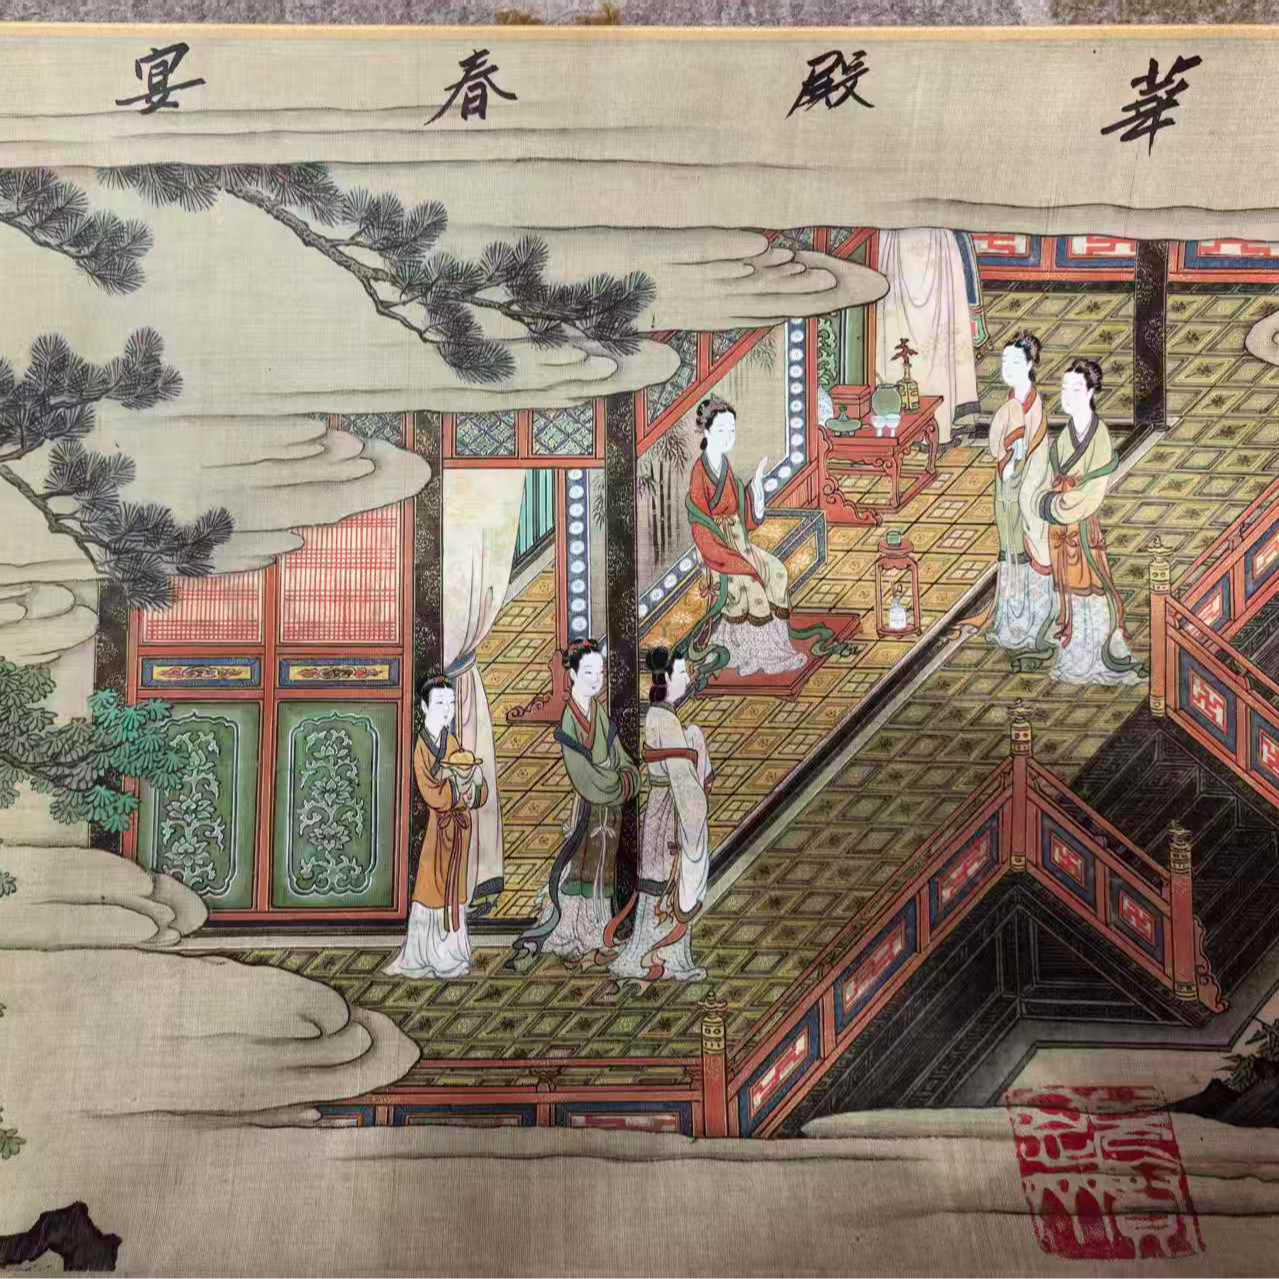 華殿春宴